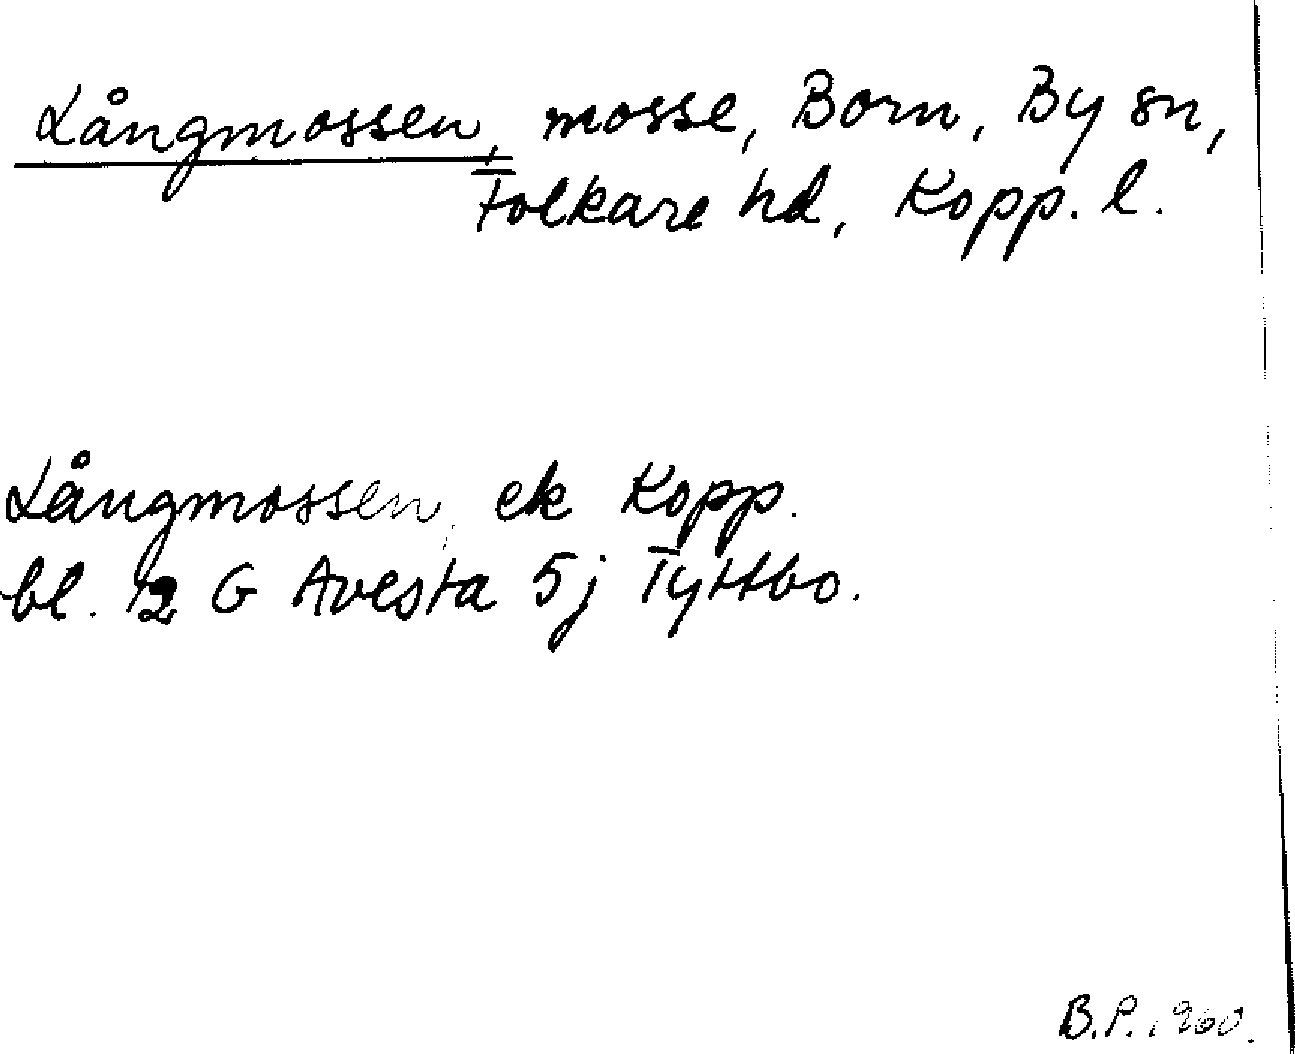 Långmossen, mosse, Born, By sn,
Folkare hd, Kopp. l.
Långmossen, ek Kopp.
bl. 12 G Avesta 5j Tyttbo.
B.P. 1960.